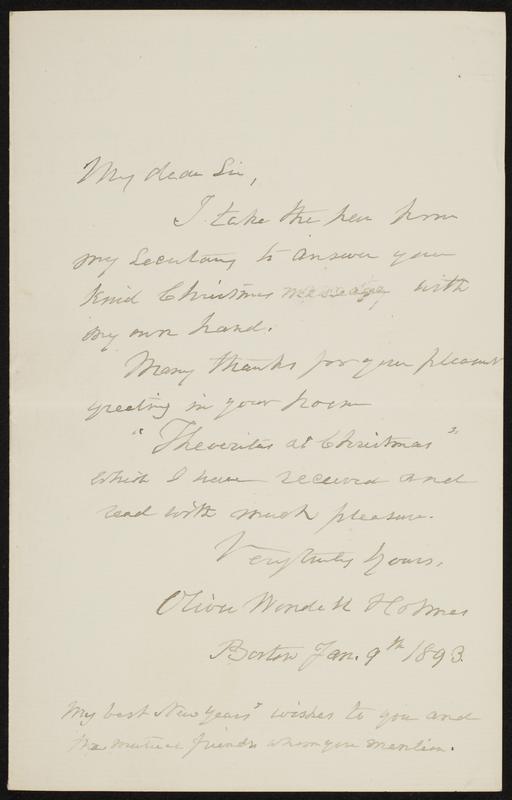 My dear Sir,
I take the pen from
my Secretary to answer your
kind Christmas message with
my own hand.
Many thanks for your pleasant
greeting in your poem
"Theocritus at Christmas"
which I have received and
read with much pleasure.
Very truly yours,
Oliver Wendell Holmes
Boston Jan. 9th 1893.
My best New Years' wishes to you and
the mutual friends whom you mention.